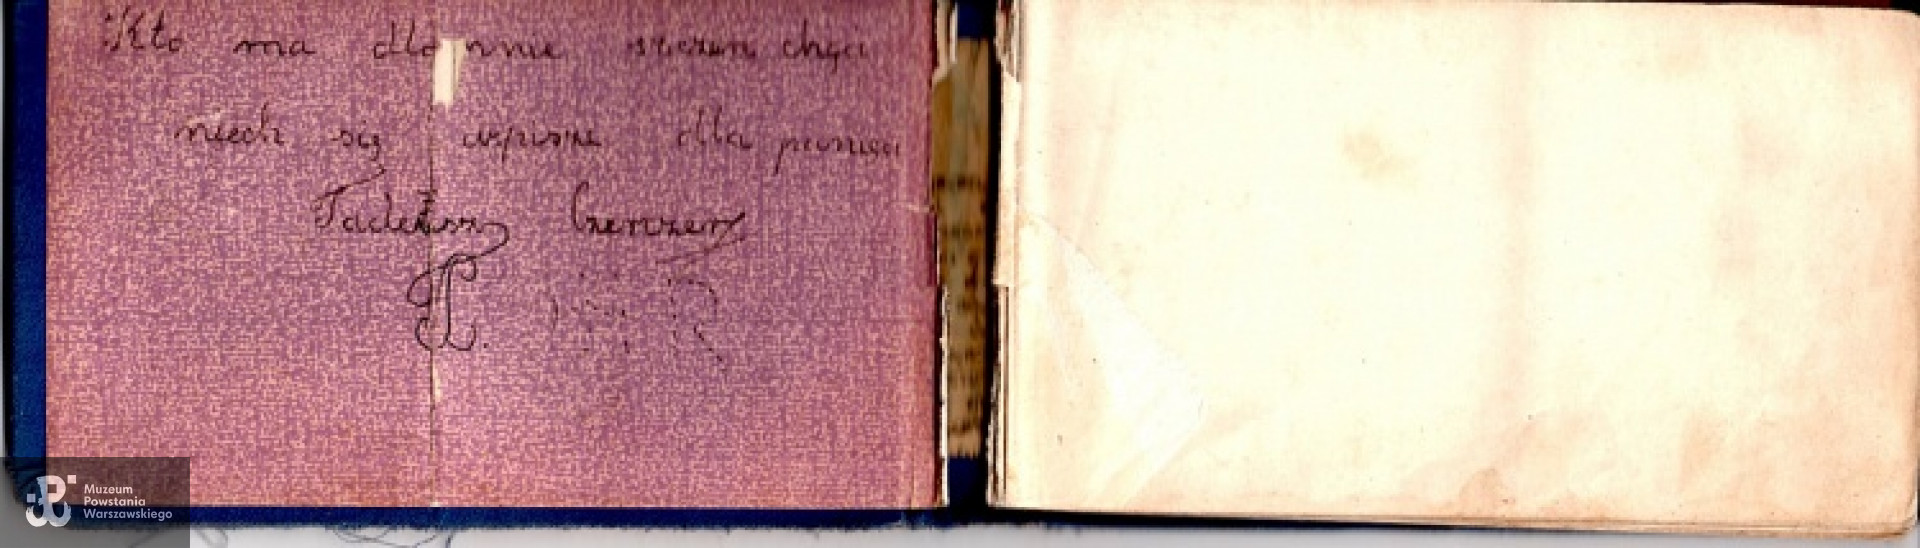 Kto ma dla mnie szczere chęci
niech się wpisze dla pamięci
Tadeusz Czenzer
Muzeum
Powstania
Warszawskiego